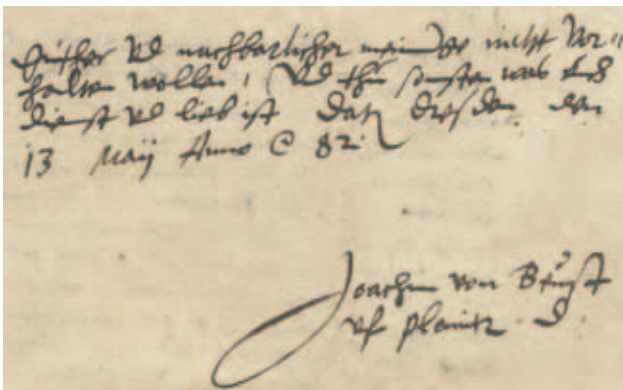 vnd nachbarlicher meinunge nicht vor=
halten wollen, vnd thu sonsten was euch
dienst vnd lieb ist Datum Dresden den
13 Maij Anno @ 82.
Joachim von Beust
vf Planitz D.